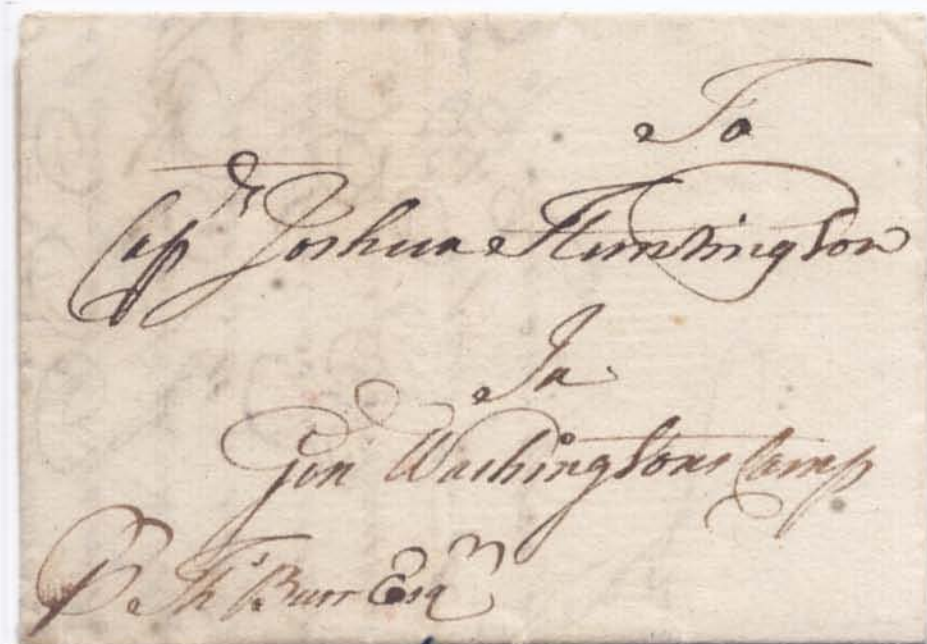 To
Capt Joshua Huntington
In
Gen Washingtons Camp
P Ths Burr Esqr